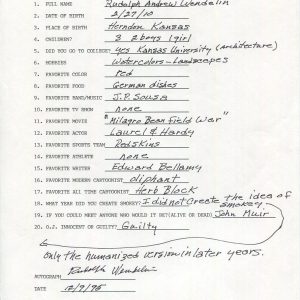 1. FULL NAME Rudolph Andrew Wendelin
2. DATE OF BIRTH 2/27/10
3. PLACE OF BIRTH Herndon, Kansas
4. CHILDREN? 3 2 boys 1 girl
5. DID YOU GO TO COLLEGE? yes Kansas University (architecture)
6. HOBBIES Watercolors - Landscapes
7. FAVORITE COLOR red
8. FAVORITE FOOD German dishes
9. FAVORITE BAND/MUSIC J.P. Sousa
10. FAVORITE TV SHOW none
11. FAVORITE MOVIE "Milagro Bean Field War"
12. FAVORITE ACTOR Laurel & Hardy
13. FAVORITE SPORTS TEAM Redskins
14. FAVORITE ATHLETE none
15. FAVORITE WRITER Edward Bellamy
16. FAVORITE MODERN CARTOONIST Oliphant
17. FAVORITE ALL TIME CARTOONIST Herb Block
18. WHAT YEAR DID YOU CREATE SMOKEY? I did not create the idea of Smokey
19. IF YOU COULD MEET ANYONE WHO WOULD IT BE (ALIVE OR DEAD) John Muir
20. O.J. INNOCENT OR GUILTY? Guilty
only the humanized version in later years.
AUTOGRAPH Rudolph Wendelin
DATE 12/9/95